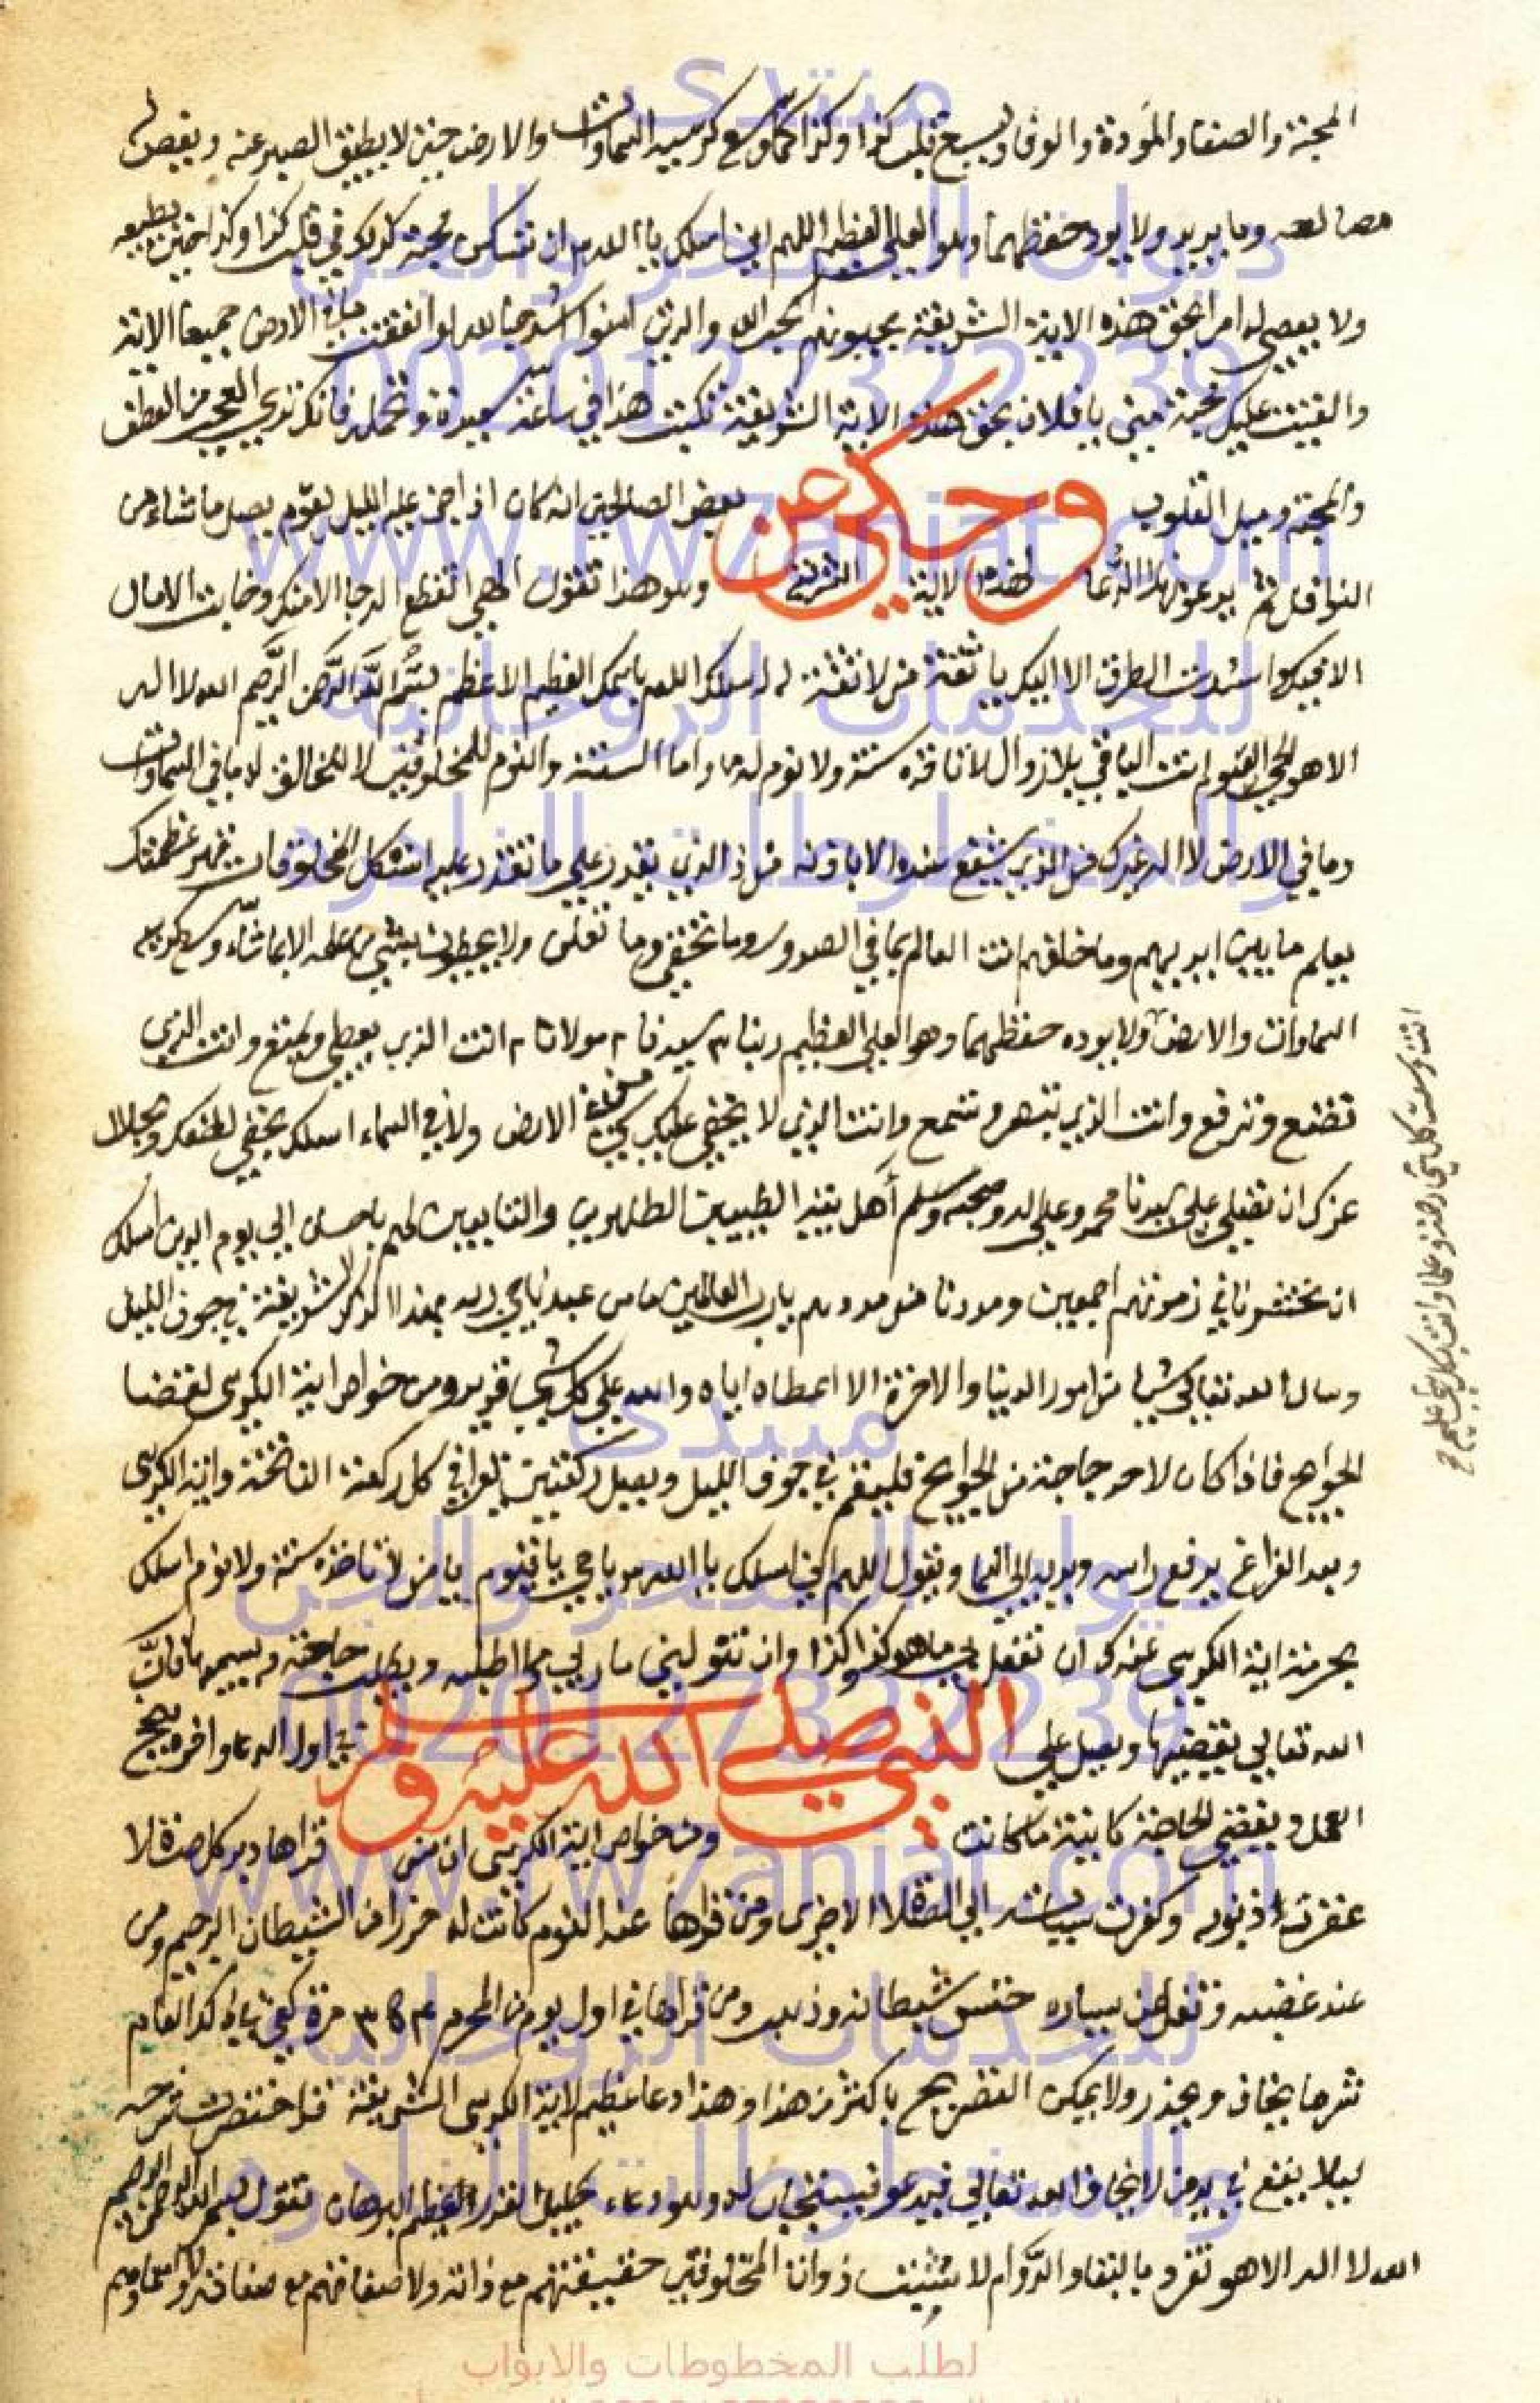 المحبة والصفا والمودة والوفا ويسع قلب كذا وكذا كما وسع كرسيه السماوات والارض حتى لا يطيق الصبر عنه ويقض له
مصالحه وما يريد ولا يوده حفظهما وهو العلي العظيم اللهم اني اسلك يا الله ٣ ان تسكن محبة كذا وكذا في قلب كذا وكذا حتى يطيعه
ولا يعصي له امرا بحق هذه الاية الشريفة يحبونهم كحب الله والذين امنوا اشد حبا لله لو انفقت ما في الارض جميعا الاية
والقيت عليك محبة مني يا فلان بحق هذه الاية الشريفة تكتب هذا في ساعة سعيدة وتحمله فانك ترى العجب من العطف
والمحبة وميل القلوب وحكي عن بعض الصالحين انه كان اذا جن عليه الليل يقوم يصل ما شاء من
النوافل ثم يدعو بهذا الدعا لهذه الاية الشريفة وهو هذا تقول الهي انقطع الرجا الا منك وخابت الامال
الا فيك وانسدت الطرق الا اليك يا ثقة من لا ثقة له اسلك اللهم باسمك العظيم الاعظم بسم الله الرحمن الرحيم الله لا اله
الا هو الحي القيوم انت الباقي بلا زوال لا تاخذه سنة ولا نوم وانما السنة والنوم للمخلوقين لا للخالق له ما في السماوات
وما في الارض لا اله غيرك من الذي يشفع عنده الا باذنه من ذا الذي يقدر على ما تقدر عليه المخلوقات عظمتك
يعلم ما بين ايديهم وما خلفهم انت العالم بما في الصدور وما تخفي وما تعلن ولا يحيطون بشي من علمه الا بما شاء وسع كرسيه
السماوات والارض ولا يوده حفظهما وهو العلي العظيم ربنا ٣ سيدنا ٣ مولانا ٣ انت الذي يعطي ويمنع وانت الذي
تضع وترفع وانت الذي تبصر وتسمع وانت الذي لا يخفى عليك شيء في الارض ولا في السماء اسلك بخفي لطفك وبجلال
عزك ان تصلي على سيدنا محمد وعلى اله وصحبه وسلم اهل بيته الطيبين الطاهرين والتابعين لهم باحسان الى يوم الدين اسلك
ان تحشرنا في زمرتهم اجمعين ومدنا من مددهم يا رب العالمين ما من عبد ناجى ربه بهذا الذكر الشريفة في جوف الليل
وسال الله تعالى شيا من امور الدنيا والاخرة الا اعطاه اياه والله على كل شي قدير ومن خواص اية الكرسي لقضا
الحوايج فاذا كان لاحد حاجة من الحوايج فليقم في جوف الليل ويصل ركعتين يقرا في كل ركعة الفاتحة واية الكرسي
وبعد الفراغ يرفع راسه ويديه الى السما ويقول اللهم اني اسلك يا الله ٣ يا حي يا قيوم يا من لا تاخذه سنة ولا نوم اسلك
بحرمة اية الكرسي عندك ان تفعل لي ما هو كذا وكذا وان تتولني يا ربي مما اطلبه ويطلب حاجته ويسميها فان
الله تعالى يقضيها ويصل على النبي صلى الله عليه وسلم في اول الدعا واخره ينجح
العمل ويقضي الحاجة كاينة ما كانت ومن خواص اية الكرسي ان من قراها دبر كل صلاة
غفرت ذنوبه وكفرت سياته الى الصلاة الاخرى ومن قراها عند النوم كانت له حرزا من الشيطان الرجيم ومن
عند غضبه وتفل عن يساره خنس شيطانه وذهب ومن قراها في اول يوم من المحرم مرة كفي ذلك العام
شر ما يخاف ويحذر ولا يمكن التصريح باكثر من هذا وهذا دعا عظيم لاية الكرسي الشريفة
ليلا يقع في يد من لا يخاف الله تعالى فيدعو فيستجاب له وهو دعاء جليل القدر عظيم البرهان تقول بسم الله الرحمن الرحيم
الله لا اله الا هو تفرد بالبقا والدوام لا يثبت ذوات المخلوقين حقيقتهم مع ذاته ولا صفاتهم مع صفاته
انت وسعت كل شي رحمة وعلما وانت بكل شي عليم
منتدى
ديوان السحر والجن
00201273222239
www.rw7aniat.com
للخدمات الروحانية
والمخطوطات النادرة
منتدى
ديوان السحر والجن
00201273222239
www.rw7aniat.com
للخدمات الروحانية
والمخطوطات النادرة
لطلب المخطوطات والابواب